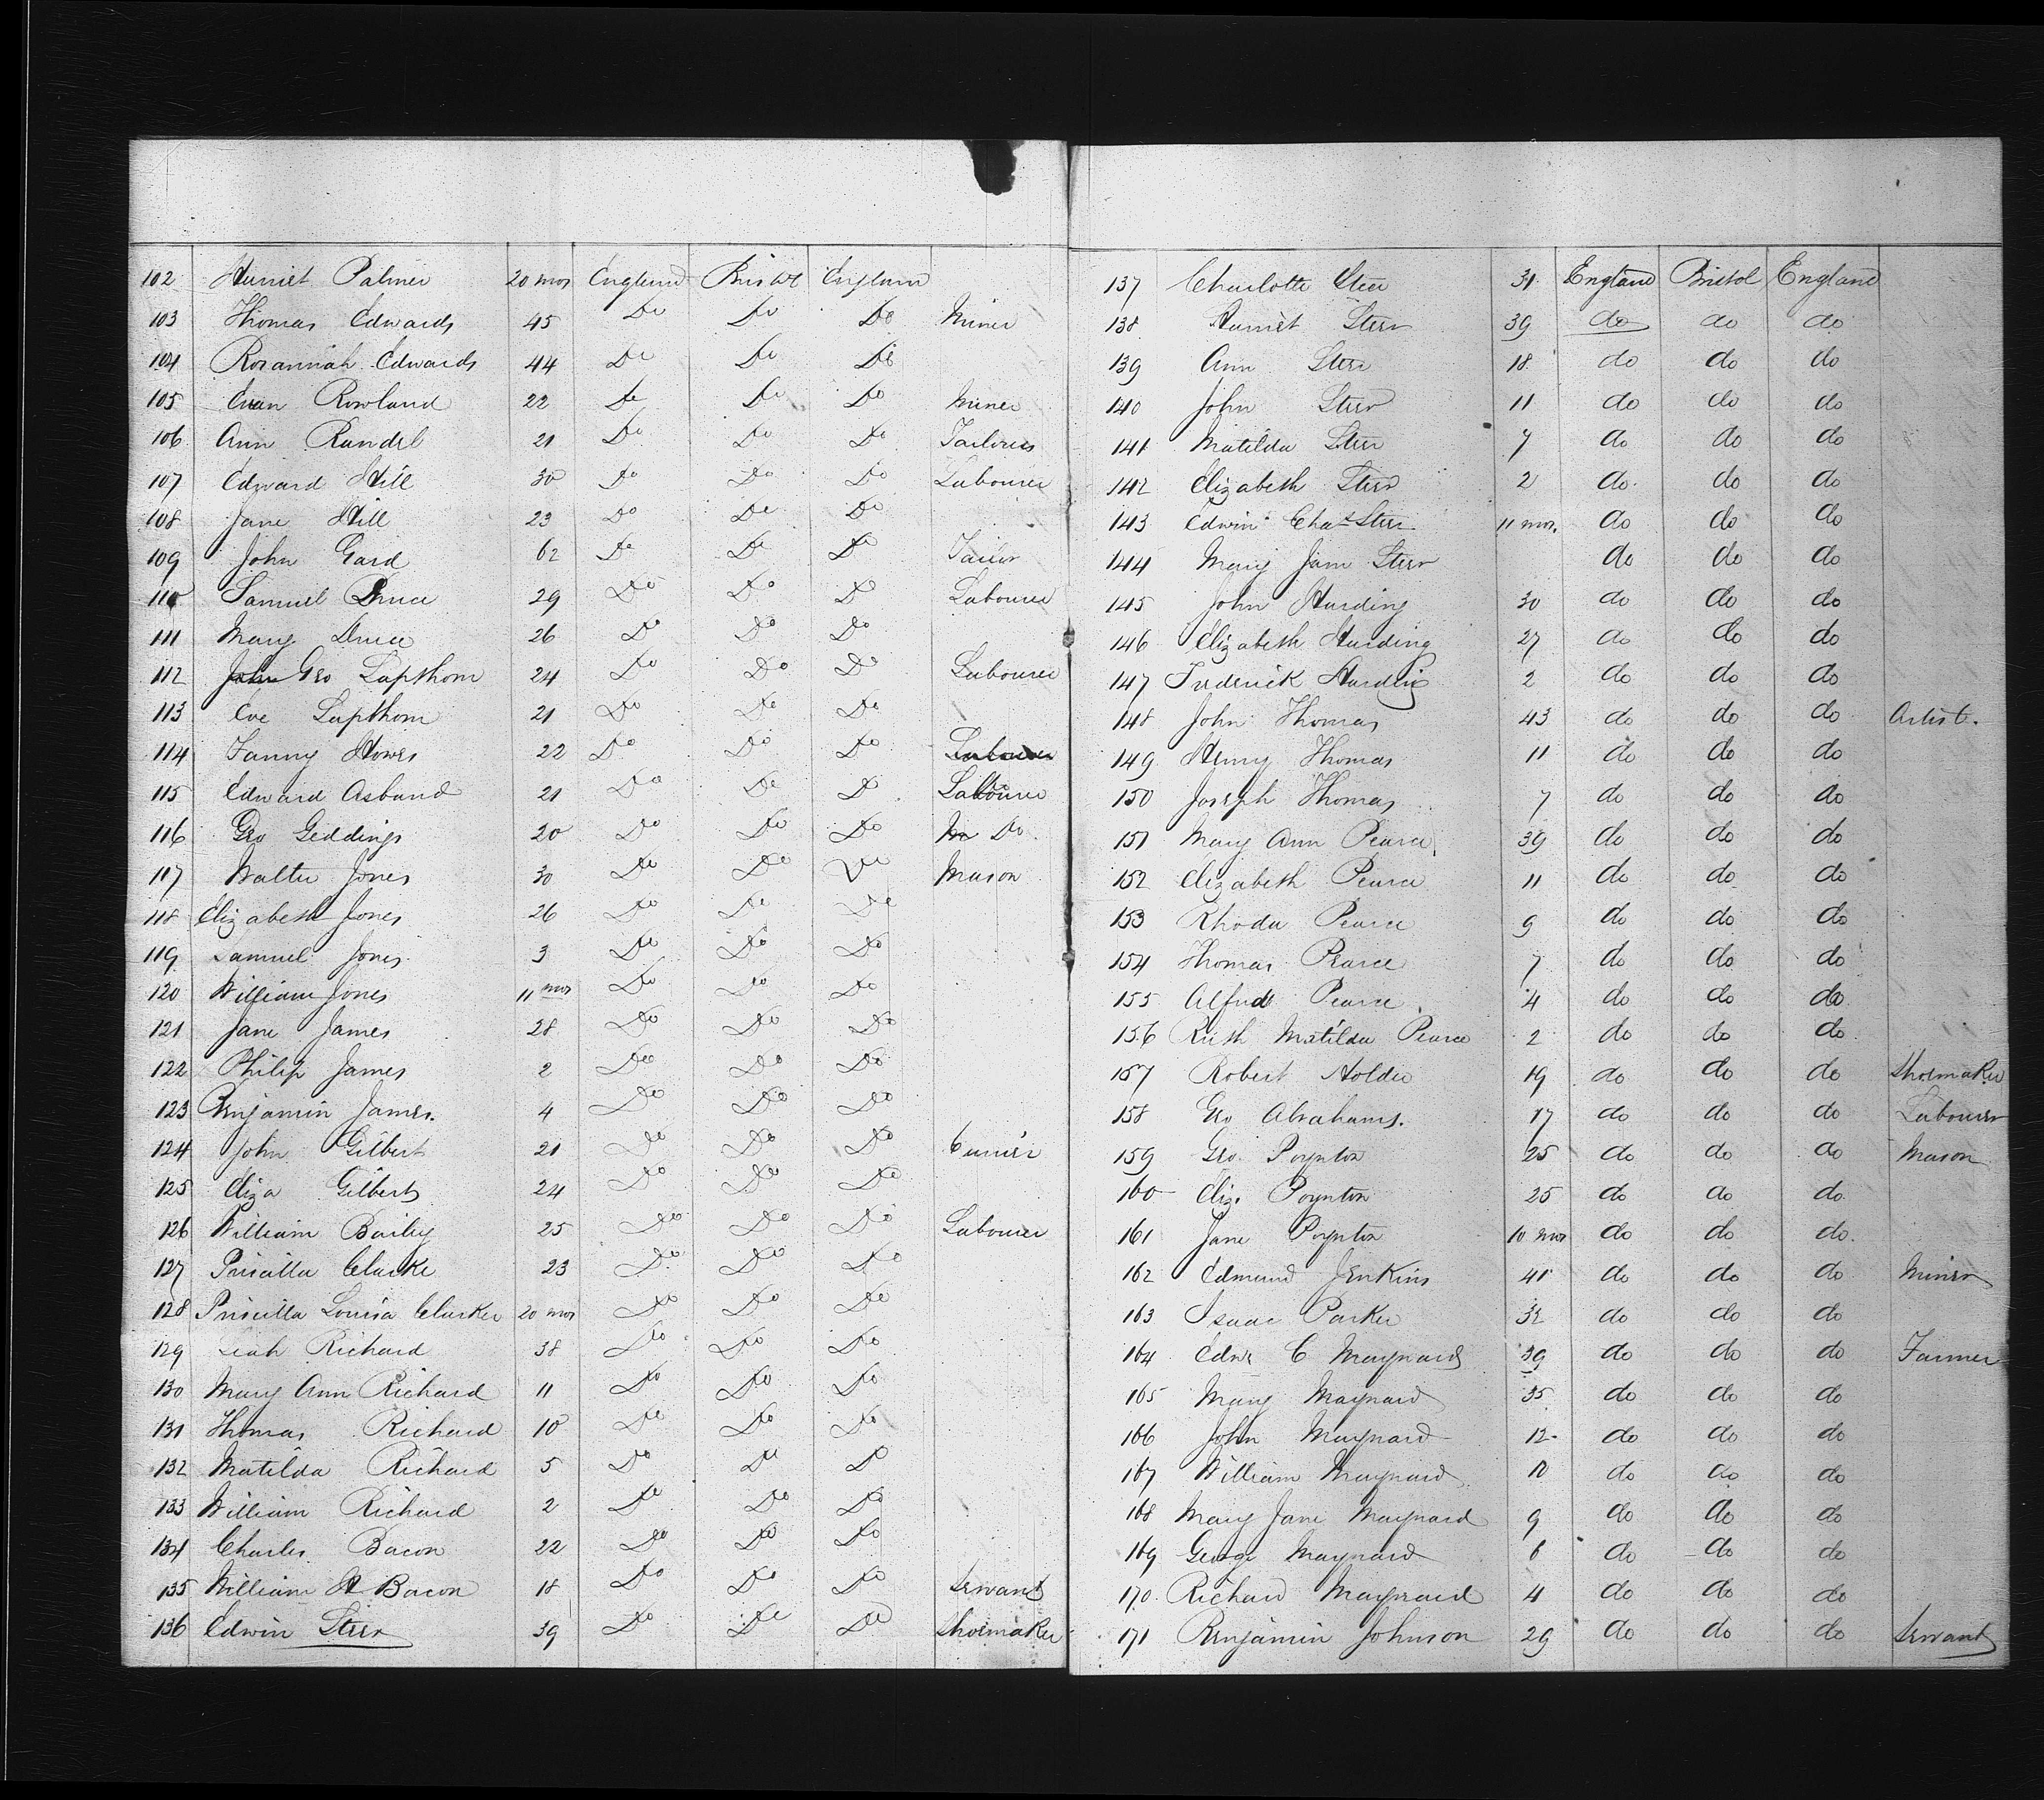 102 Harriet Palmer 20 mos England Bristol England
103 Thomas Edwards 45 Do Do Do Miner
104 Rosannah Edwards 44 Do Do Do
105 Evan Rowland 22 Do Do Do Miner
106 Ann Randel 21 Do Do Do Tailoress
107 Edward Hill 30 Do Do Do Labourer
108 Jane Hill 23 Do Do Do
109 John Gard 62 Do Do Do Tailor
110 Samuel Druce 29 Do Do Do Labourer
111 Mary Druce 26 Do Do Do
112 John Geo Lapthorn 24 Do Do Do Labourer
113 Eve Lapthorn 21 Do Do Do
114 Fanny Howes 22 Do Do Do Labourer
115 Edward Asband 21 Do Do Do Labourer
116 Geo Geddings 20 Do Do Do M Do
117 Walter Jones 30 Do Do Do Mason
118 Elizabeth Jones 26 Do Do Do
119 Samuel Jones 3 Do Do Do
120 William Jones 11 mos Do Do Do
121 Jane James 28 Do Do Do
122 Philip James 2 Do Do Do
123 Benjamin James. 4 Do Do Do
124 John Gilbert 21 Do Do Do Currier
125 Eliza Gilbert 24 Do Do Do
126 William Bailey 25 Do Do Do Labourer
127 Priscilla Clarke 23 Do Do Do
128 Priscilla Louisa Clarke 20 mos Do Do Do
129 Leah Richard 38 Do Do Do
130 Mary Ann Richard 11 Do Do Do
131 Thomas Richard 10 Do Do Do
132 Matilda Richard 5 Do Do Do
133 William Richard 2 Do Do Do
134 Charles Bacon 22 Do Do Do
135 William H Bacon 18 Do Do Do Servant
136 Edwin Steer 39 Do Do Do Shoemaker
137 Charlotte Steer 31 England Bristol England
138 Harriet Steer 39 do do do
139 Ann Steer 18 do do do
140 John Steer 11 do do do
141 Matilda Steer 7 do do do
142 Elizabeth Steer 2 do do do
143 Edwin Chas Steer 11 mos. do do do
144 Mary Jane Steer do do do
145 John Harding 30 do do do
146 Elizabeth Harding 27 do do do
147 Frederick Harding 2 do do do
148 John Thomas 43 do do do Artist.
149 Henry Thomas 11 do do do
150 Joseph Thomas 7 do do do
151 Mary Ann Pearce 39 do do do
152 Elizabeth Pearce 11 do do do
153 Rhoda Pearce 9 do do do
154 Thomas Pearce 7 do do do
155 Alfred Pearce 4 do do do
156 Ruth Matilda Pearce 2 do do do
157 Robert Holder 19 do do do Shoemaker
158 Geo Abrahams. 17 do do do Labourer
159 Geo Poynton 25 do do do Mason
160 Eliz. Poynton 25 do do do
161 Jane Poynton 10 mos do do do.
162 Edmund Jenkins 41 do do do Miner
163 Isaac Parker 32 do do do
164 Edwd C Maynard 39 do do do Farmer
165 Mary Maynard 35 do do do
166 John Maynard 12 do do do
167 William Maynard 10 do do do
168 Mary Jane Maynard 9 do do do
169 George Maynard 6 do do do
170. Richard Maynard 4 do do do
171 Benjamin Johnson 29 do do do Servant